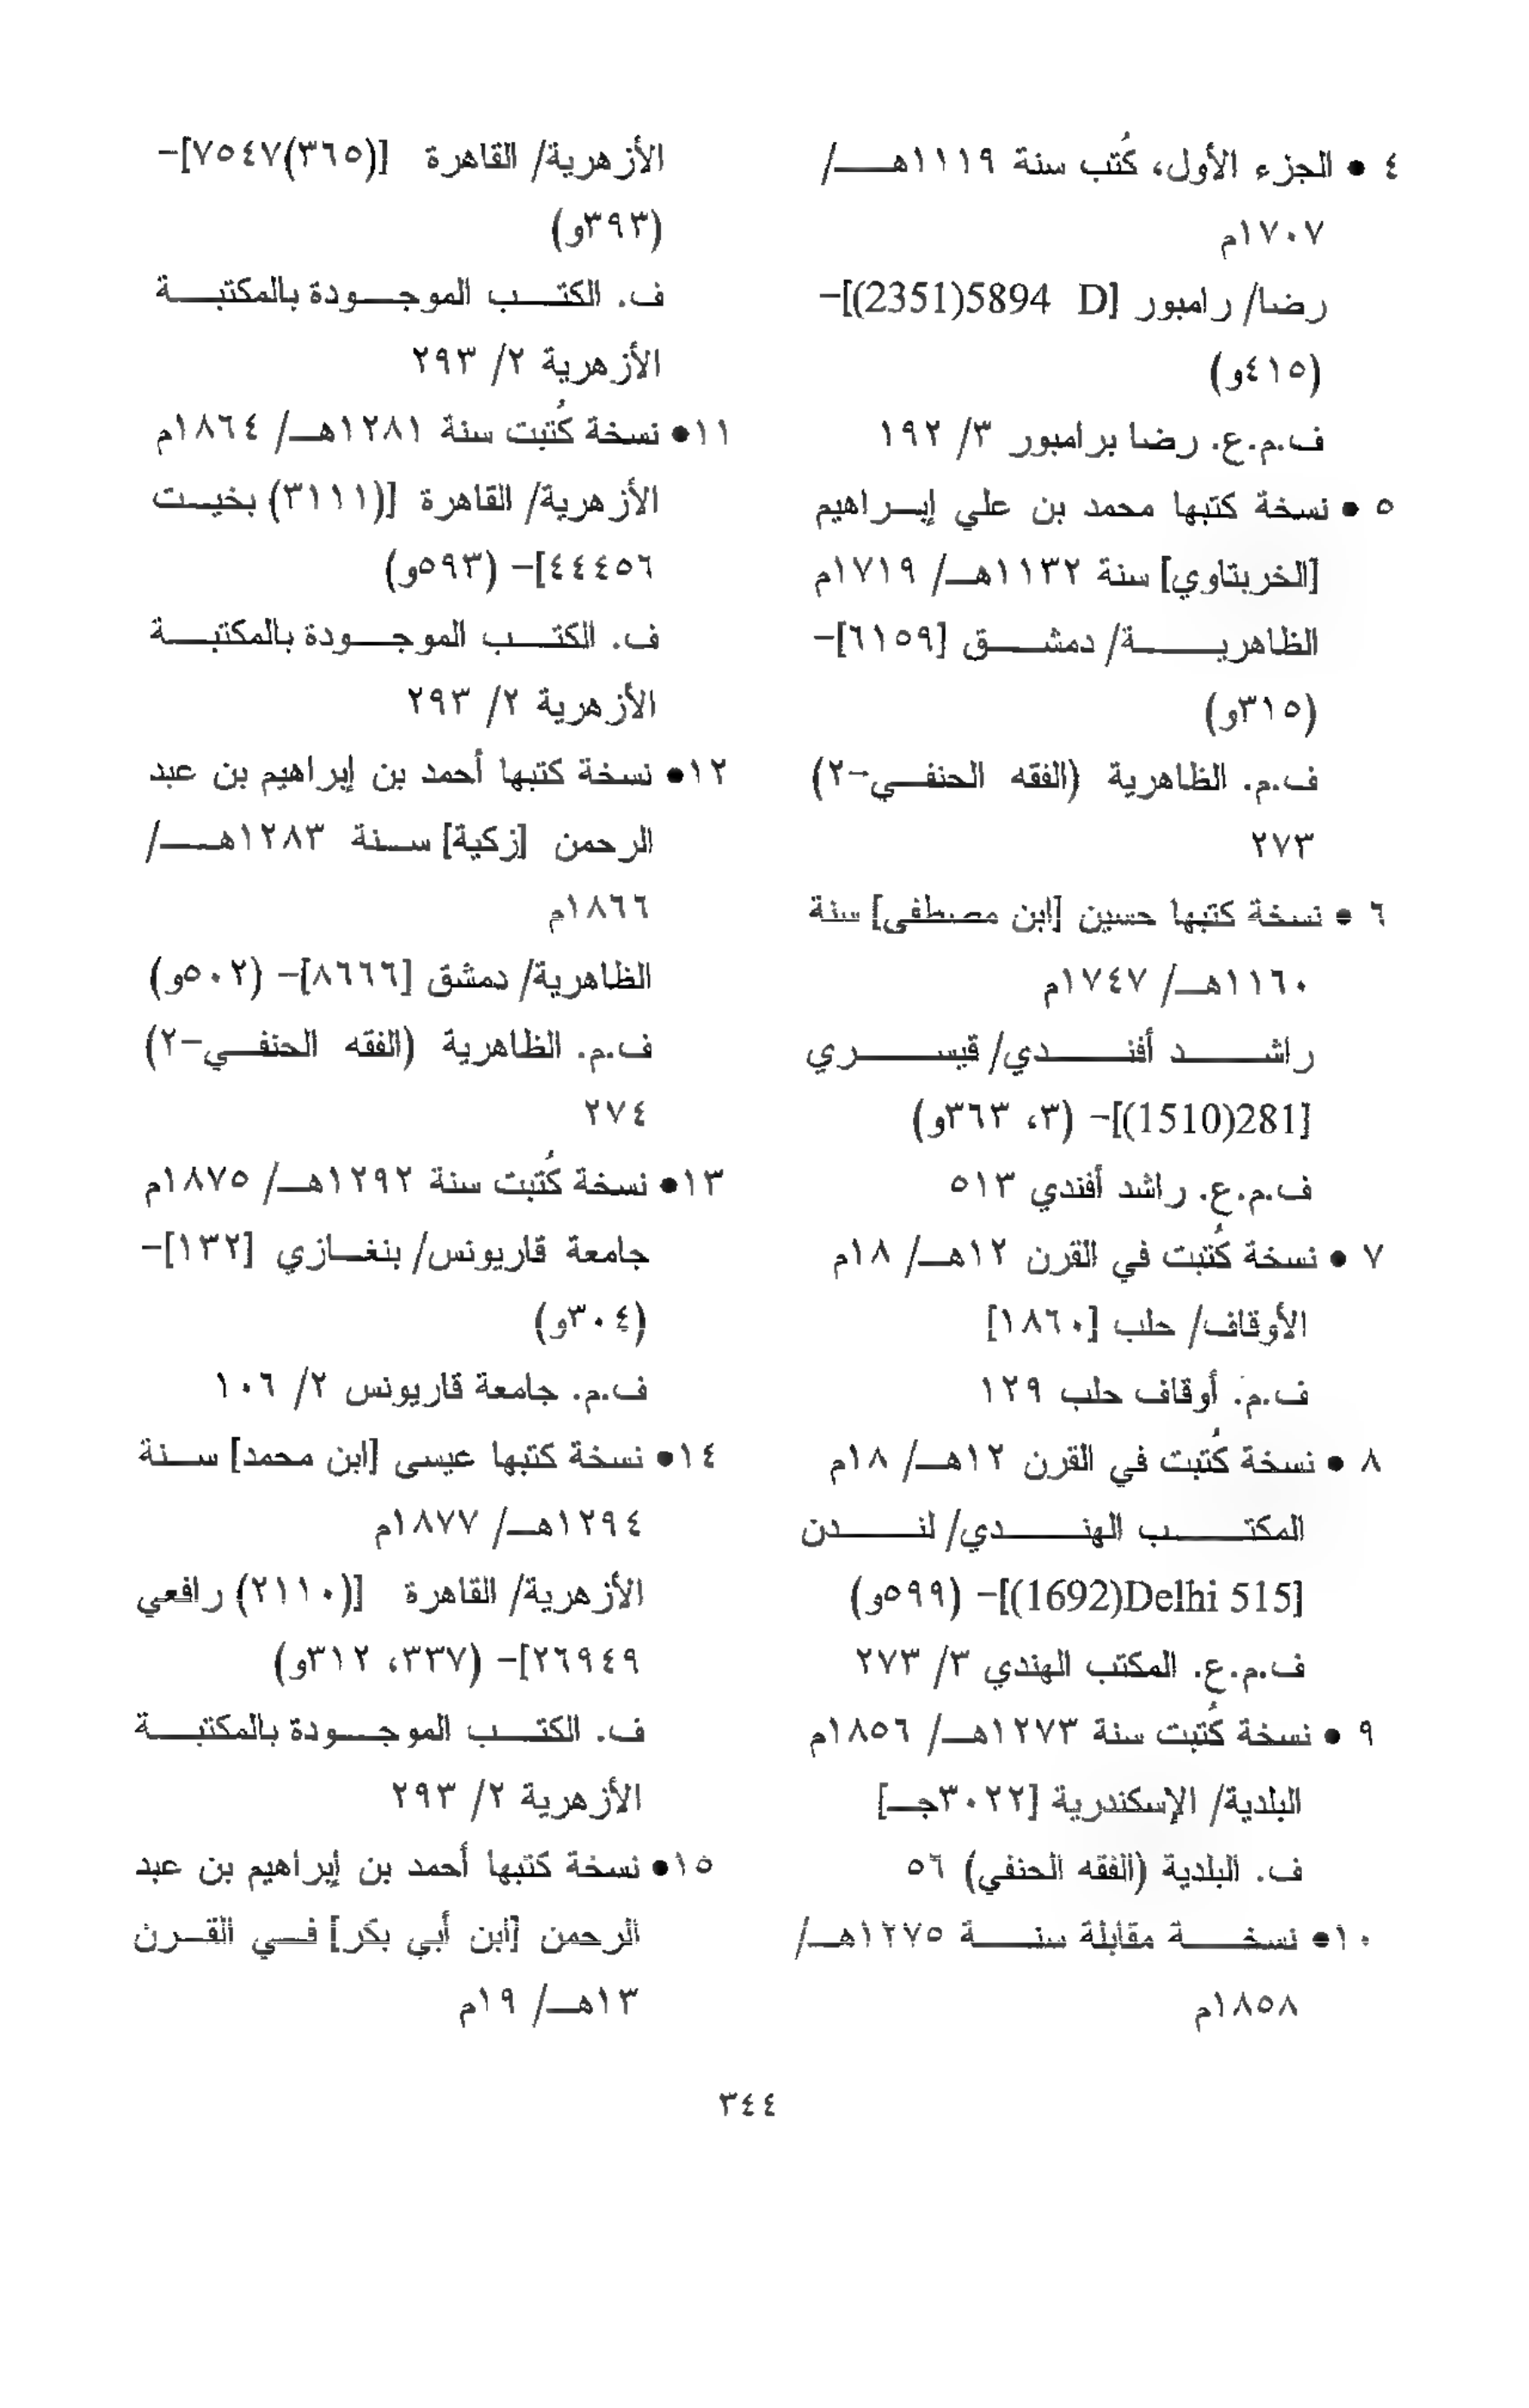 ٤ • الجزء الأول، كُتب سنة ١١١٩هـ/
١٧٠٧م
رضا/ رامبور [5894 D(2351)]-
(٤١٥و)
ف.م.ع. رضا برامبور ٣/ ١٩٢
٥ • نسخة كتبها محمد بن علي إبراهيم
[الخربتاوي] سنة ١١٣٢هـ/ ١٧١٩م
الظاهرية/ دمشق [٦١٥٩]-
(٣١٥و)
ف.م. الظاهرية (الفقه الحنفي-٢)
٢٧٣
٦ • نسخة كتبها حسين [ابن مصطفى] سنة
١١٦٠هـ/ ١٧٤٧م
راشد أفندي/ قيسري
[281(1510)]- (٣، ٣٦٣و)
ف.م.ع. راشد أفندي ٥١٣
٧ • نسخة كُتبت في القرن ١٢هـ/ ١٨م
الأوقاف/ حلب [١٨٦٠]
ف.م. أوقاف حلب ١٢٩
٨ • نسخة كُتبت في القرن ١٢هـ/ ١٨م
المكتب الهندي/ لندن
[Delhi 515(1692)]- (٥٩٩و)
ف.م.ع. المكتب الهندي ٣/ ٢٧٣
٩ • نسخة كُتبت سنة ١٢٧٣هـ/ ١٨٥٦م
البلدية/ الإسكندرية [٣٠٢٢جـ]
ف. البلدية (الفقه الحنفي) ٥٦
١٠• نسخة مقابلة سنة ١٢٧٥هـ/
١٨٥٨م
الأزهرية/ القاهرة [(٣٦٥)٧٥٤٧]-
(٣٩٣و)
ف. الكتب الموجودة بالمكتبة
الأزهرية ٢/ ٢٩٣
١١• نسخة كُتبت سنة ١٢٨١هـ/ ١٨٦٤م
الأزهرية/ القاهرة [(٣١١١) بخيت
٤٤٤٥٦]- (٥٩٣و)
ف. الكتب الموجودة بالمكتبة
الأزهرية ٢/ ٢٩٣
١٢• نسخة كتبها أحمد بن إبراهيم بن عبد
الرحمن [زكية] سنة ١٢٨٣هـ/
١٨٦٦م
الظاهرية/ دمشق [٨٦٦٦]- (٥٠٢و)
ف.م. الظاهرية (الفقه الحنفي-٢)
٢٧٤
١٣• نسخة كُتبت سنة ١٢٩٢هـ/ ١٨٧٥م
جامعة قاريونس/ بنغازي [١٣٢]-
(٣٠٤و)
ف.م. جامعة قاريونس ٢/ ١٠٦
١٤• نسخة كتبها عيسى [ابن محمد] سنة
١٢٩٤هـ/ ١٨٧٧م
الأزهرية/ القاهرة [(٢١١٠) رافعي
٢٦٩٤٩]- (٣٣٧، ٣١٢و)
ف. الكتب الموجودة بالمكتبة
الأزهرية ٢/ ٢٩٣
١٥• نسخة كتبها أحمد بن إبراهيم بن عبد
الرحمن [ابن أبي بكر] في القرن
١٣هـ/ ١٩م
٣٤٤